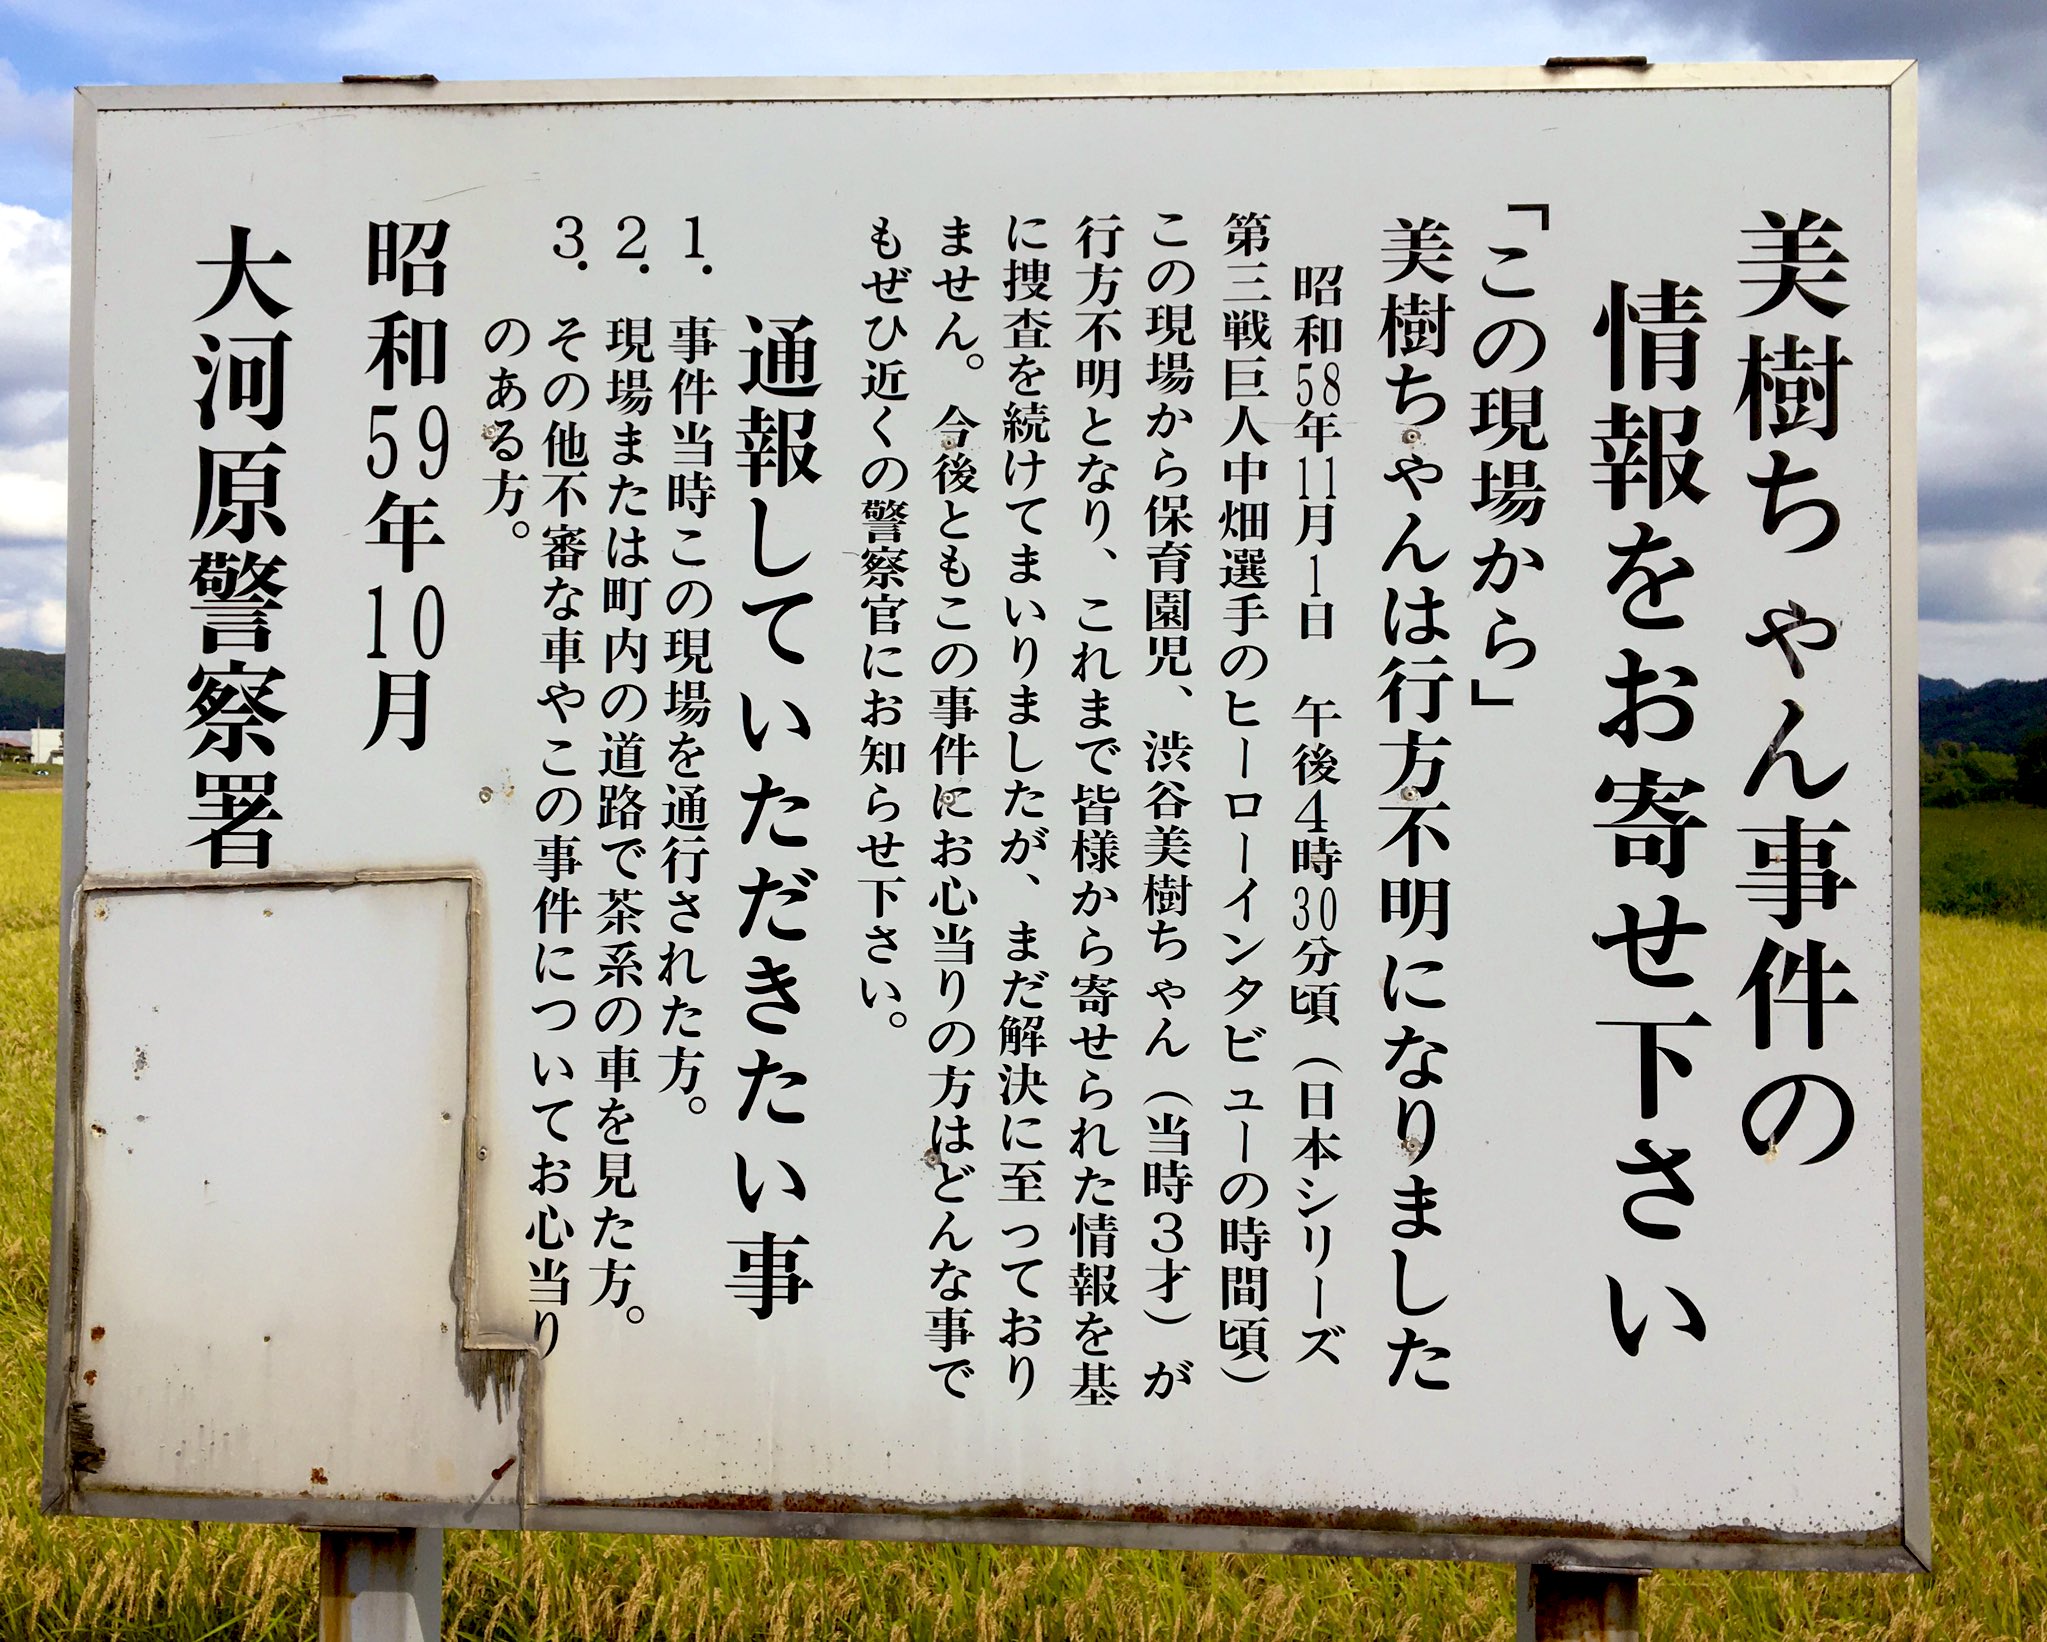 美樹ちゃん事件の
情報をお寄せ下さい
「この現場から」
美樹ちゃんは行方不明になりました
昭和58年11月1日　午後4時30分頃（日本シリーズ
第三戦巨人中畑選手のヒーローインタビューの時間頃）
この現場から保育園児、渋谷美樹ちゃん（当時３才）が
行方不明となり、これまで皆様から寄せられた情報を基
に捜査を続けてまいりましたが、まだ解決に至っており
ません。今後ともこの事件にお心当りの方はどんな事で
もぜひ近くの警察官にお知らせ下さい。
通報していただきたい事
１．事件当時この現場を通行された方。
２．現場または町内の道路で茶系の車を見た方。
３．その他不審な車やこの事件についてお心当り
のある方。
昭和59年10月
大河原警察署